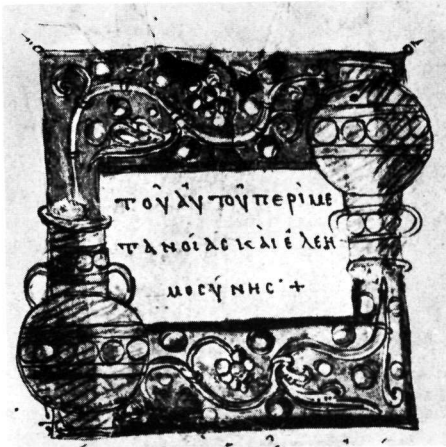 τοῦ αὐτοῦ περὶ με
τανοίας καὶ ἐλεη
μοσύνης· +